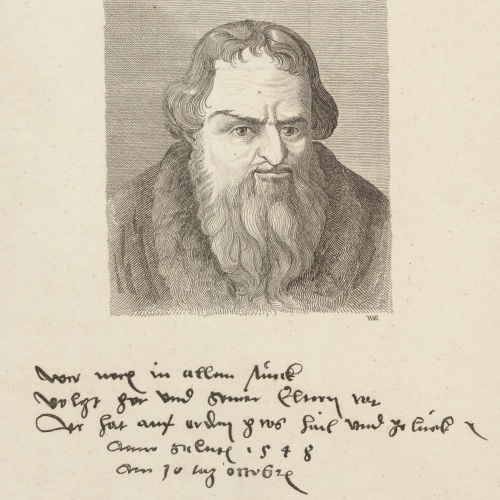 WR.
wer noch in allem stuck
volgt got und seiner Eltern rat
Der hat auf erden gros hail und gluck
Anno Salutis 1548
am 10 tag octobris